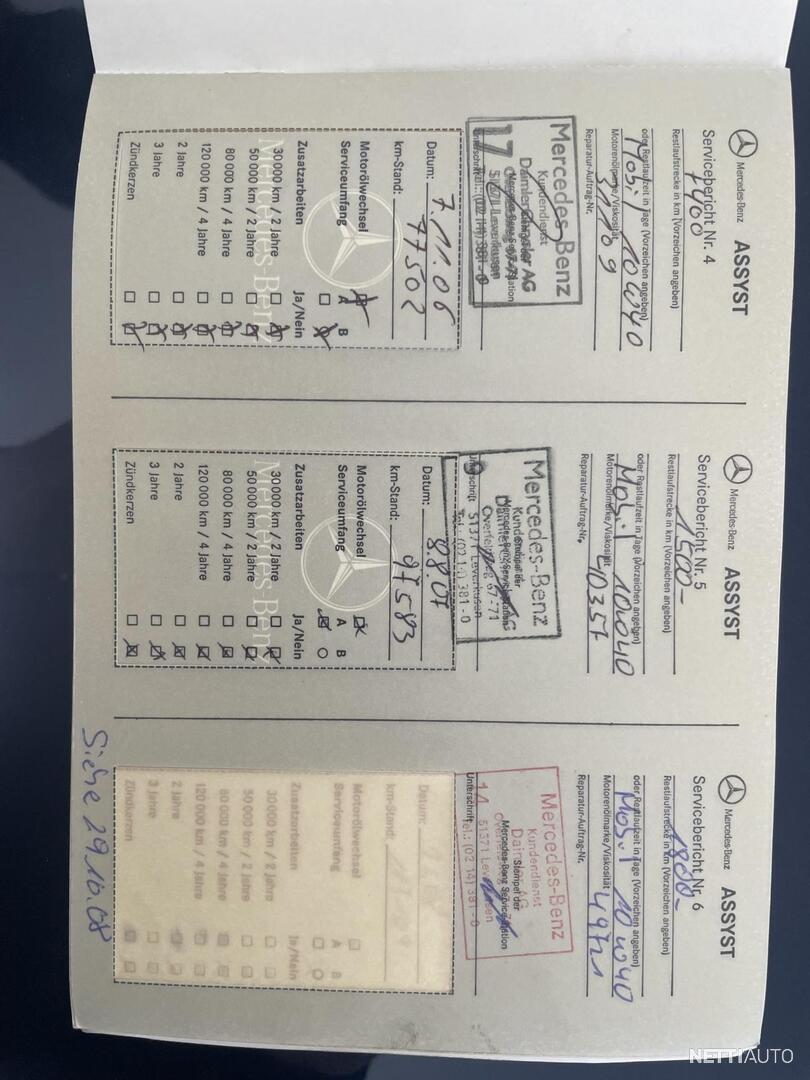 Mercedes-Benz ASSYST
Servicebericht Nr. 4
Restlaufstrecke in km (Vorzeichen angeben)
7400
oder Restlaufzeit in Tage (Vorzeichen angeben)
Mobil 10W40
Motorenölmarke/Viskosität
Reparatur-Auftrag-Nr.
Mercedes-Benz
Kundendienst
DaimlerChrysler AG
51371 Leverkusen
Tel.: (02 14) 381-0
Datum: 7.11.06
km-Stand: 77502
Motorölwechsel
Serviceumfang A B
Zusatzarbeiten Ja/Nein
30 000 km / 2 Jahre
50 000 km / 2 Jahre
80 000 km / 4 Jahre
120 000 km / 4 Jahre
2 Jahre
3 Jahre
Zündkerzen
Mercedes-Benz
Mercedes-Benz ASSYST
Servicebericht Nr. 5
1500-
Restlaufstrecke in km (Vorzeichen angeben)
oder Restlaufzeit in Tage (Vorzeichen angeben)
Mobil 10W40
Motorenölmarke/Viskosität
40357
Reparatur-Auftrag-Nr.
Mercedes-Benz
Kundendienst
51371 Leverkusen
Tel.: (02 14) 381-0
Datum: 8.8.07
km-Stand: 97583
Motorölwechsel
Serviceumfang A B
Zusatzarbeiten Ja/Nein
30 000 km / 2 Jahre
50 000 km / 2 Jahre
80 000 km / 4 Jahre
120 000 km / 4 Jahre
2 Jahre
3 Jahre
Zündkerzen
Mercedes-Benz
Mercedes-Benz ASSYST
Servicebericht Nr. 6
1800-
Restlaufstrecke in km (Vorzeichen angeben)
oder Restlaufzeit in Tage (Vorzeichen angeben)
Mobil 10W40
Motorenölmarke/Viskosität
49721
Reparatur-Auftrag-Nr.
Mercedes-Benz
Kundendienst
Stempel der
Mercedes-Benz Servicestation
14 51371 Leverkusen
Tel.: (02 14) 381-0
Unterschrift
Datum:
km-Stand:
Motorölwechsel
Serviceumfang A B
Zusatzarbeiten Ja/Nein
30 000 km / 2 Jahre
50 000 km / 2 Jahre
80 000 km / 4 Jahre
120 000 km / 4 Jahre
2 Jahre
3 Jahre
Zündkerzen
Siehe 29.10.08
NETTIAUTO